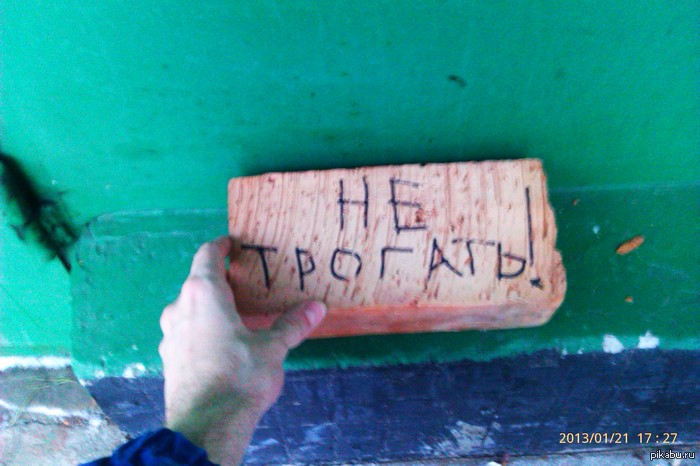 НЕ
ТРОГАТЬ!
2013/01/21 17:27
pikabu.ru